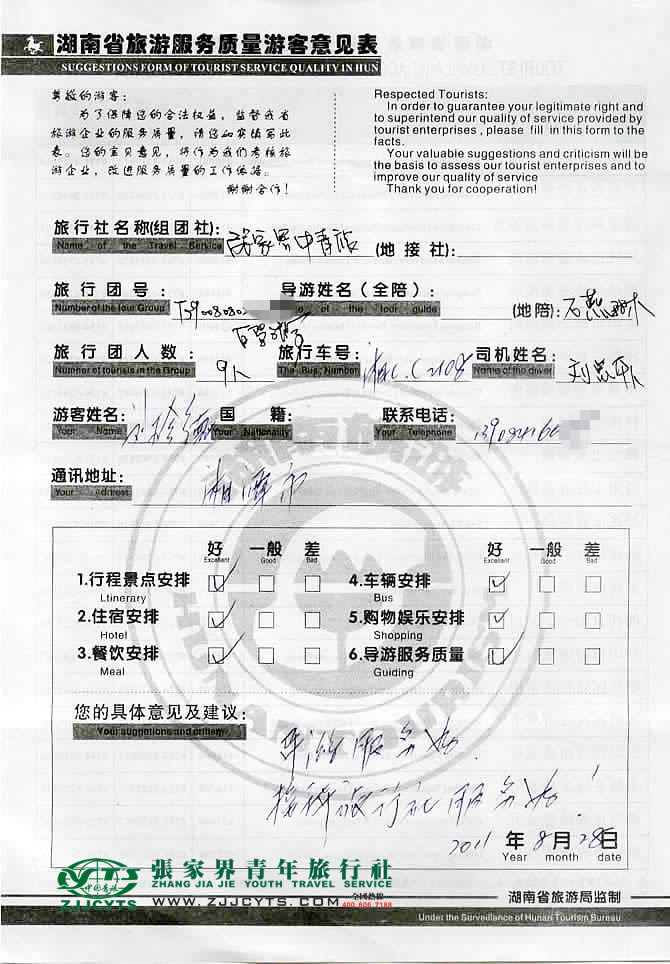 湖南省旅游服务质量游客意见表
SUGGESTIONS FORM OF TOURIST SERVICE QUALITY IN HUN
尊敬的游客:
为了保障您的合法权益,监督我省
旅游企业的服务质量,请您如实填写此
表。您的宝贝意见,将作为我们考核旅
游企业,改进服务质量的工作依据。
谢谢合作!
Respected Tourists:
In order to guarantee your legitimate right and
to superintend our quality of service provided by
tourist enterprises , please fill in this form to the
facts.
Your valuable suggestions and criticism will be
the basis to assess our tourist enterprises and to
improve our quality of service
Thank you for cooperation!
旅行社名称(组团社): 张家界中青旅 (地接社):
Name of the Travel Service
旅行团号: 导游姓名(全陪): (地陪):
Number of the tour Group e of the tour guide
旅行团人数: 9人 旅行车号: 司机姓名:
Number of tourists in the Group The Bus, Number Name of the driver
游客姓名: 国籍: 联系电话:
Your Name Your Nationality Your Telephone
通讯地址: 湘潭市
Your Address
好 一般 差 好 一般 差
Excellent Good Bad Excellent Good Bad
1.行程景点安排 4.车辆安排
Ltinerary Bus
2.住宿安排 5.购物娱乐安排
Hotel Shopping
3.餐饮安排 6.导游服务质量
Meal Guiding
您的具体意见及建议:
Your suggetions and critism
导游服务好.
接待旅行社服务好!
2011年8月28日
Year month date
中国青旅
ZJJCYTS
張家界青年旅行社
ZHANG JIA JIE YOUTH TRAVEL SERVICE
WWW.ZJJCYTS.COM 全国热线 400 606 7188
湖南省旅游局监制
Under the Surveillance of Hunan Tourism Bureau